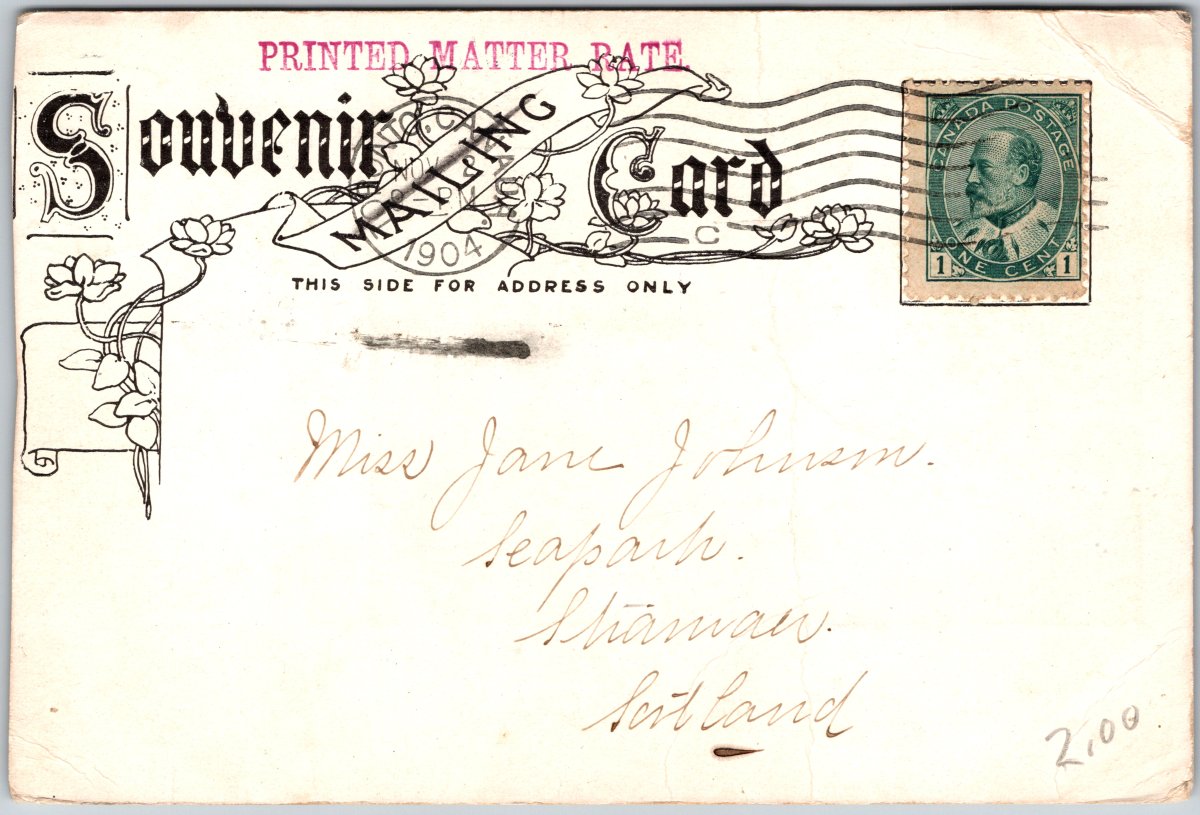 PRINTED MATTER RATE.
Souvenir MAILING Card
NOV
PM
1904
C
THIS SIDE FOR ADDRESS ONLY
CANADA POSTAGE
1 ONE CENT 1
Miss Jane Johnson.
Seapark.
Scotland
2.00